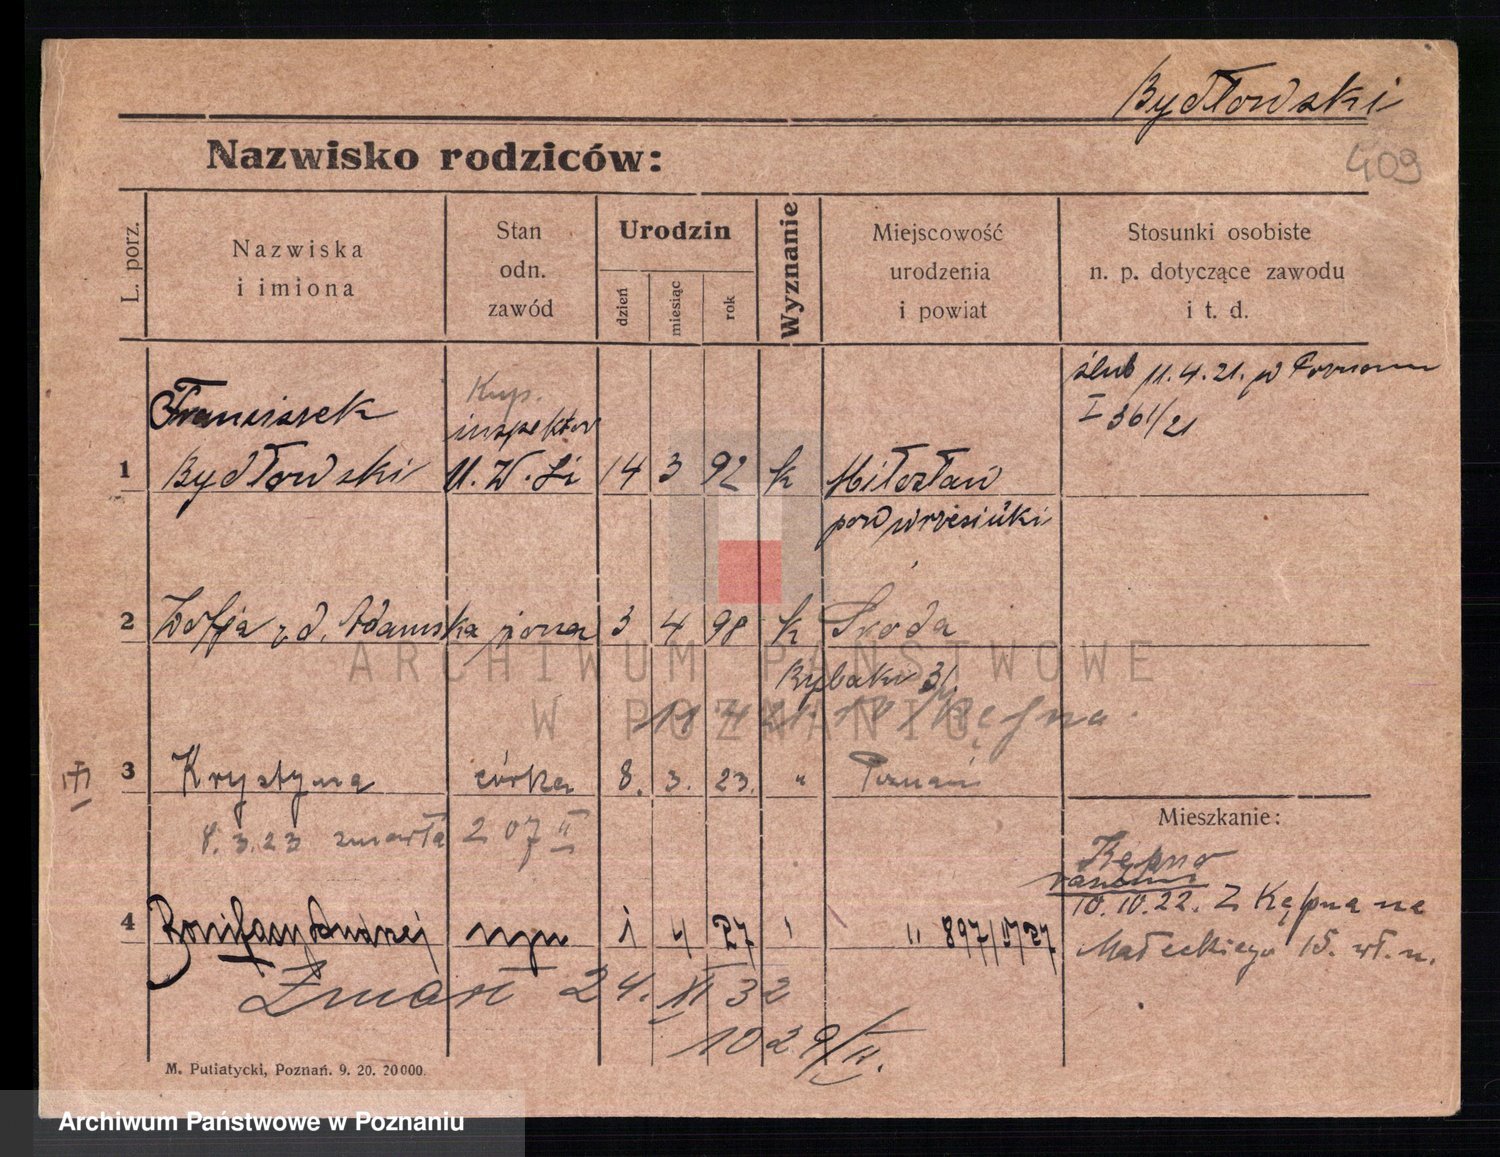 Bydłowski
Nazwisko rodziców:
409
L. porz.
Nazwiska
i imiona
Stan
odn.
zawód
Urodzin
dzień
miesiąc
rok
Wyznanie
Miejscowość
urodzenia
i powiat
Stosunki osobiste
n. p. dotyczące zawodu
i t. d.
ślub 11.4.21. w Poznaniu
I 361/21
Kup.
Franciszek inspektor
1 Bydłowski U. W. Li 14 3 92 k Miłosław
pow wrzesiński
2 Zofja z d. Adamska żona 3 4 98 k Środa
Rybaki 31.
Kępna.
3 Krystyna córka 8. 3. 23. " Poznań
8.3.23 zmarła 207 II
Mieszkanie:
Kępno
10.10.22. Z Kępna na
Małeckiego 15. wł. m.
4 Bonifacy Andrzej syn 1 4 27 " 897/IV/27
Zmarł 24. XI 32
1029/II.
M. Putiatycki, Poznań. 9. 20. 20000.
ARCHIWUM PAŃSTWOWE
W POZNANIU
Archiwum Państwowe w Poznaniu